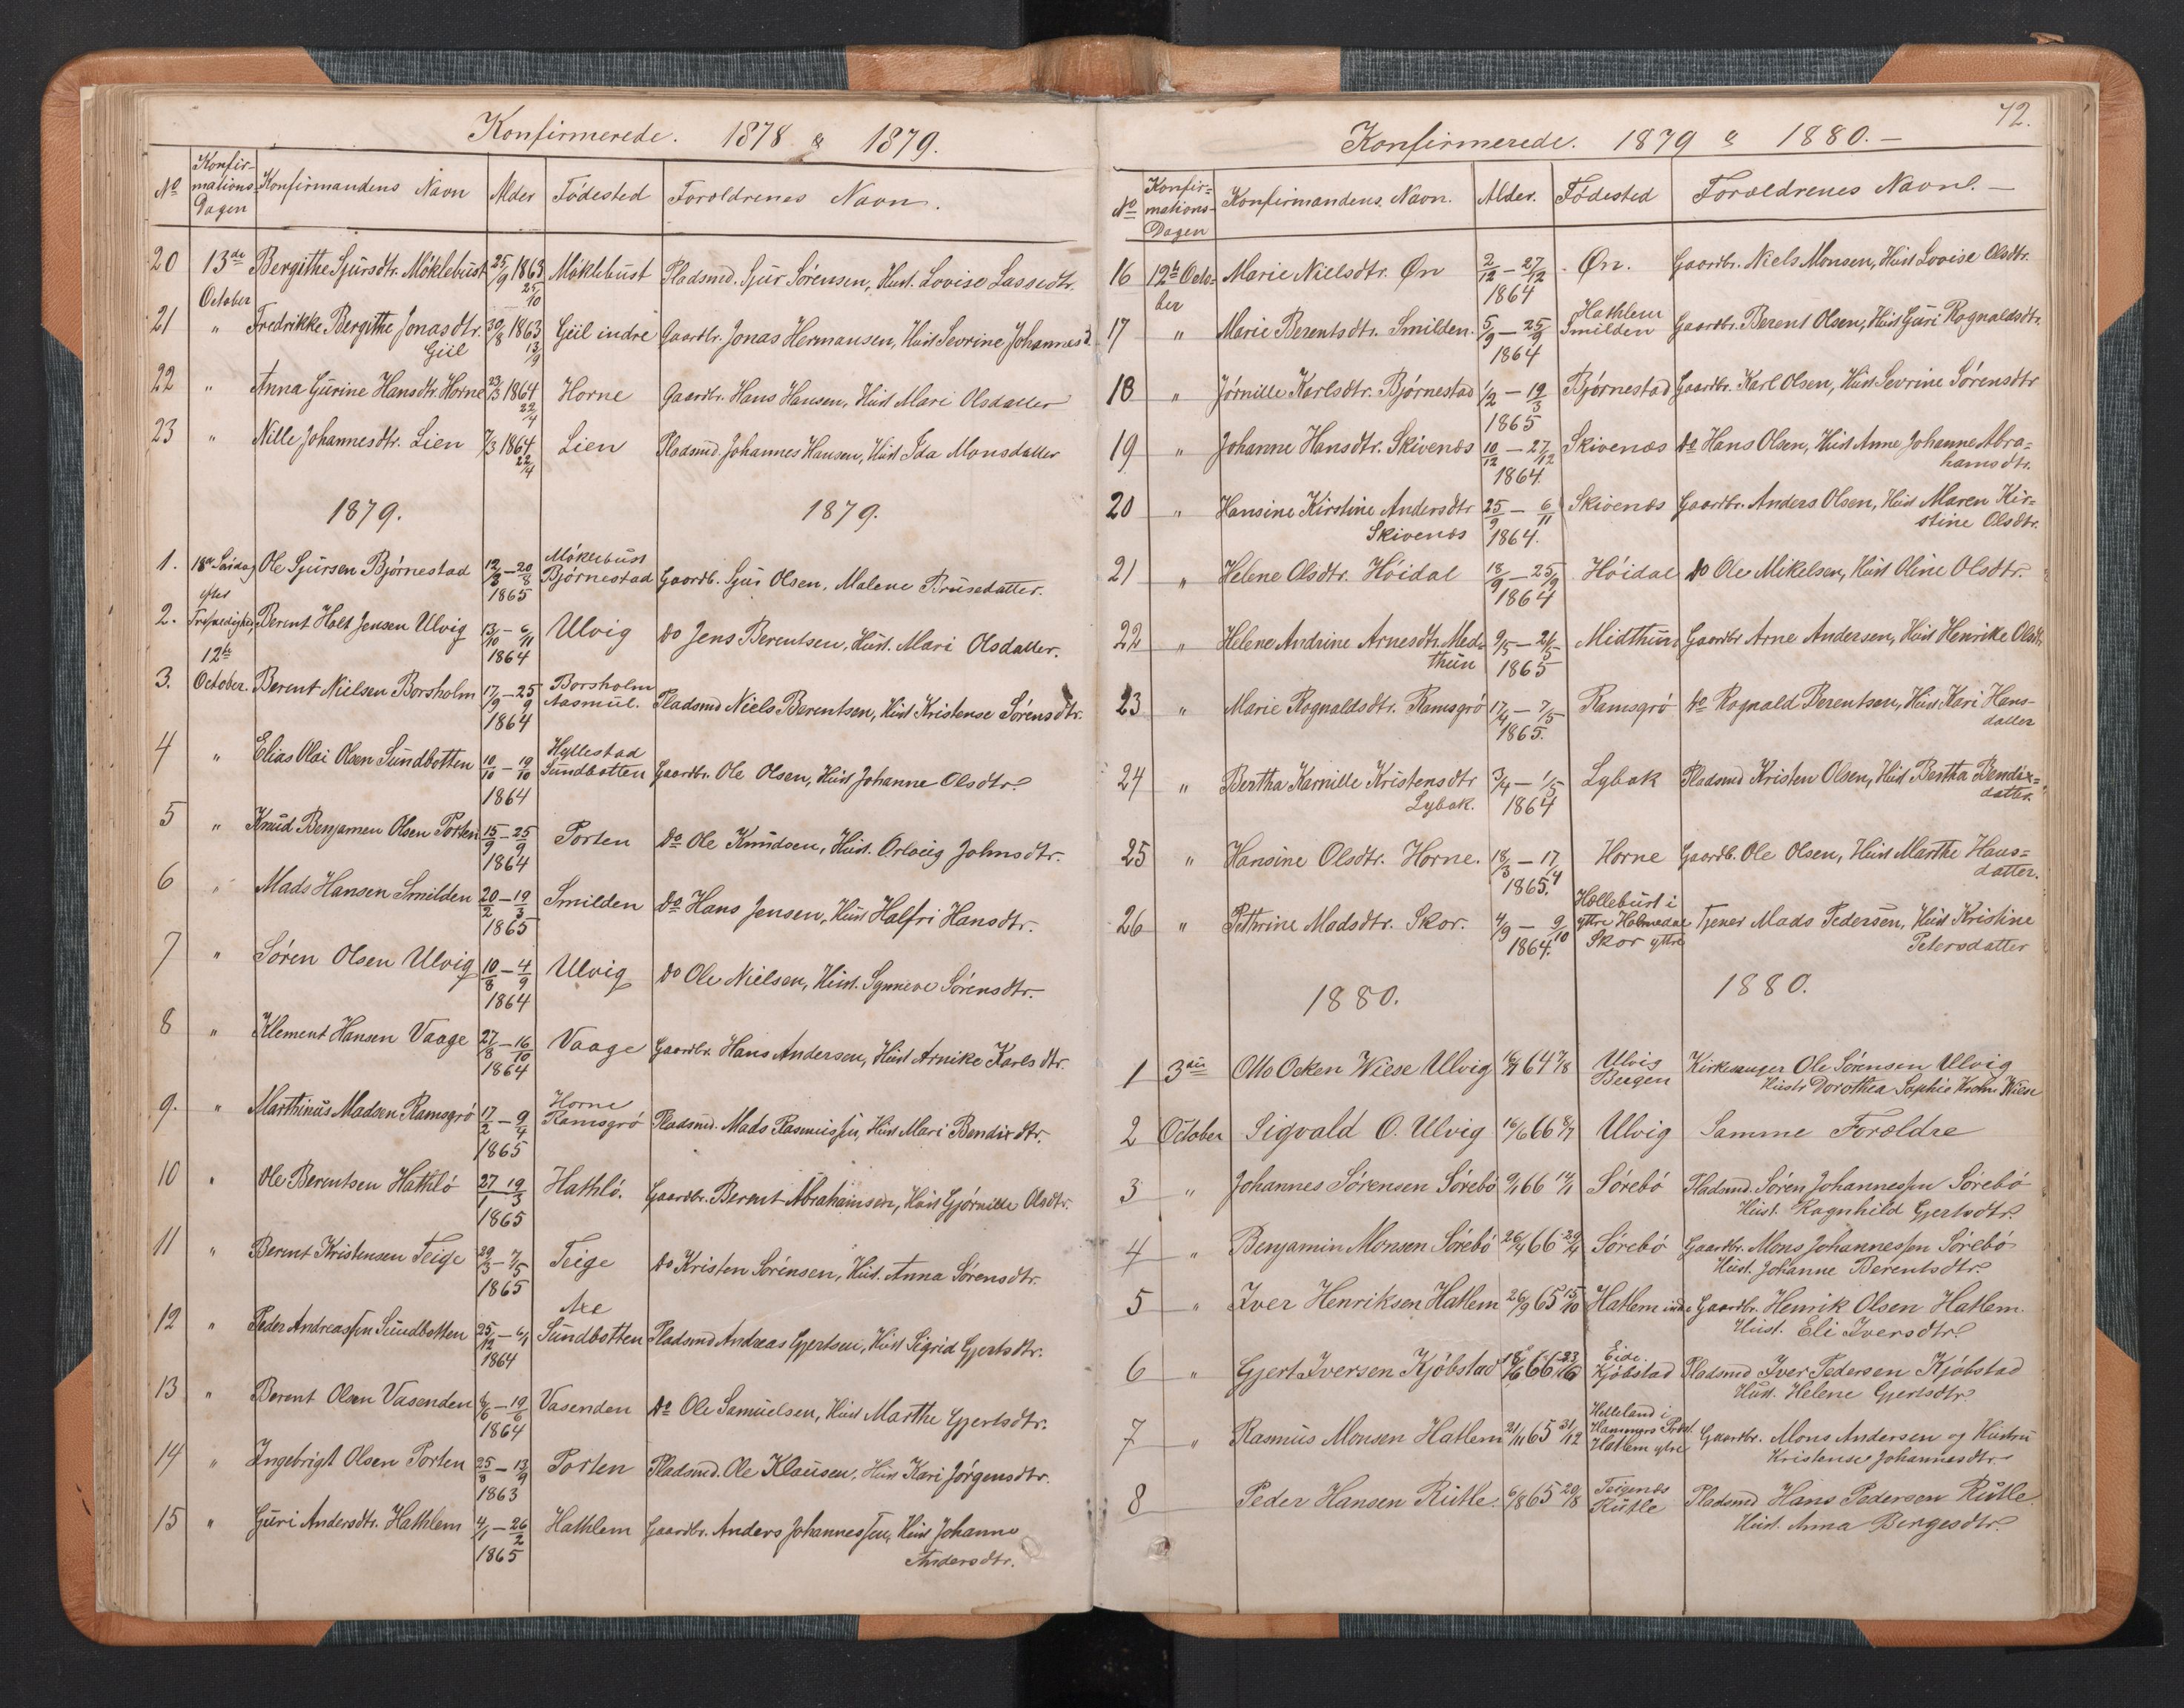 Konfirmerede. 1878 & 1879.
No Konfirmations-Dagen Konfirmandens Navn Alder Fødested Forældrenes Navn.
20 13de October Bergithe Sjursdtr. Møklebust 25/9 1863 25/10 Møklebust Pladsmd. Sjur Sørensen, Hust. Lovise Lassedtr.
21 " Fredrikke Bergithe Jonasdtr. Giil 30/8 1863 13/9 Giil indre Gaardbr. Jonas Hermansen, Hust Sevrine Johannesd.
22 " Anna Gurine Hansdtr. Horne 23/3 1864 22/4 Horne Gaardbr. Hans Hansen, Hust Mari Olsdatter
23 " Nille Johannesdtr. Lien 7/3 1864 22/4 Lien Pladsmd. Johannes Hansen, Hust Ida Monsdatter
1879. 1879.
1. 18de Søndag efter Ole Sjursen Bjørnestad 12/3 – 20/8 1865 Møklebust Bjørnestad Gaardb. Sjur Olsen, Malene Brusedatter.
2. Trefoldighed, 12te Berent Holt Jensen Ulvig 13/10 – 6/11 1864 Ulvig do Jens Berentsen, Hust. Mari Olsdatter.
3. October. Berent Nielsen Borsholm 17/9 – 25/9 1864 Borsholm Aasmul. Pladsmd Niels Berentsen, Hust Kristense Sørensdtr.
4 " Elias Olai Olsen Sundbotten 10/10 – 19/10 1864 Hyllestad Sundbotten Gaardbr. Ole Olsen, Hust Johanne Olsdtr.
5 " Knud Benjamen Olsen Porten 15/9 – 25/9 1864 Porten do Ole Knudsen, Hust. Orlaug Johnsdtr.
6 " Mads Hansen Smilden 20/2 – 19/3 1865 Smilden do Hans Jensen, Hust Halfri Hansdtr.
7 " Søren Olsen Ulvig 10/8 – 4/9 1864 Ulvig do Ole Nielsen, Hust. Synneve Sørensdtr.
8 " Klement Hansen Vaage 27/8 – 16/10 1864 Vaage Gaardbr. Hans Andersen, Hust Arnike Karlsdtr.
9. " Marthinus Madsen Ramsgrø 17/2 – 9/4 1865 Horne Ramsgrø Pladsmd. Mads Rasmussen, Hust Mari Bendixdtr.
10 " Ole Berentsen Hathlø 27/1 19/3 1865 Hathlø. Gaardbr. Berent Abrahamsen, Hust Gjørnille Olsdtr.
11 " Berent Kristensen Teige 29/3 – 7/5 1865 Teige do Kristen Sørensen, Hust. Anna Sørensdtr.
12 " Peder Andreassen Sundbotten 25/12 – 6/1 1864 Axe Sundbotten Pladsmd Andreas Gjertsen, Hust Sigrid Gjertsdtr.
13 " Berent Olsen Vasenden 6/6 – 19/6 1864 Vasenden do Ole Samuelsen, Hust Marthe Gjertsdtr.
14 " Ingebrigt Olsen Porten 25/8 – 13/9 1863 Porten Pladsmd. Ole Klausen, Hust Kari Jørgensdtr.
15 " Guri Andersdtr. Hathlem 4/1 – 26/2 1865 Hathlem Gaardbr. Anders Johannessen, Hust Johanne Andersdtr.
72.
Konfirmerede. 1879 & 1880. –
No Konfir=mations-Dagen Konfirmandens Navn. Alder. Fødested Forældrenes Navne. –
16 12te October Marie Nielsdtr. Øn 2/12 – 27/12 1864 Øn. Gaardbr. Niels Monsen, Hust Lovise Olsdtr.
17 " Marie Berentsdtr. Smilden. 5/9 – 25/9 1864 Hathlem Smilden Gaardbr. Berent Olsen, Hust Guri Rognaldsdtr.
18 " Jørnille Karlsdtr. Bjørnestad 1/2 – 19/3 1865 Bjørnestad Gaardbr. Karl Olsen, Hust Sevrine Sørensdtr
19 " Johanne Hansdtr. Skivenæs 10/12 – 27/12 1864. Skivenæs do Hans Olsen, Hust Anne Johanne Abra=hamsdtr.
20 " Hansine Kirstine Andersdtr Skivenæs 25/9 – 6/11 1864. Skivenæs Gaardbr. Anders Olsen, Hust Maren Kir=stine Olsdtr.
21 " Helene Olsdtr. Høidal 18/9 – 25/9 1864 Høidal do Ole Mikelsen, Hust Oline Olsdtr.
22 " Helene Andrine Arnesdtr. Mid=thun 9/5 – 21/5 1865 Midthun Gaardbr Arne Andersen, Hust Henrike Olsdtr.
23 " Marie Rognaldsdtr. Ramsgrø 17/4 – 7/5 1865. Ramsgrø do Rognald Berentsen, Hust. Kari Hans-datter
24 " Bertha Karnille Kristensdtr Lybak. 3/4 – 1/5 1864 Lybak Pladsmd Kristen Olsen, Hust Bertha Bendix=datter.
25 " Hansine Olsdtr. Horne. 18/3 – 17/4 1865. Horne Gaardb. Ole Olsen, Hust Marthe Hans=datter.
26 " Pethrine Madsdtr. Skor. 4/9 – 9/10 1864. Hollebust i yttre Holmedal Skor yttre Tjener Mads Pedersen, Hust Kristine Petersdatter
1880. 1880.
1 3die Otto Ocken Wiese Ulvig 64 7/8 Ulvig Bergen Kirkesanger Ole Sørensen Ulvig Hustr Dorothea Sophie Krohn Wiese
2 October Sigvald O. Ulvig 16/6 66 8/7 Ulvig Samme Forældre
3 " Johannes Sørensen Sørebø 9/1 66 14/1 Sørebø Pladsmd. Søren Johannessen Sørebø Hust. Ragnhild Gjertsdtr.
4 " Benjamin Monsen Sørebø 26/4 66 29/4 Sørebø Gaardbr. Mons Johannessen Sørebø Hust. Johanne Berentsdtr.
5 " Iver Henriksen Hatlem 26/9 65 15/10 Hatlem indre Gaardbr. Henrik Olsen Hatlem. Hust. Eli Iversdtr.
6 " Gjert Iversen Kjøbstad 66 Eide. Kjøbstad Pladsmd Iver Pedersen Kjøbstad Hust. Helene Gjertsdtr.
7 " Rasmus Monsen Hatlem 21/11 65 31/12 Helleland i Hammers Præst. Hatlem ytre Gaardbr. Mons Andersen og Hustru Kristense Johannesdtr.
8 Peder Hansen Rutle. 6/8 65 20/8 Teigenæs Rutle Pladsmd Hans Pedersen Rutle. Hust. Anna Bergesdtr.